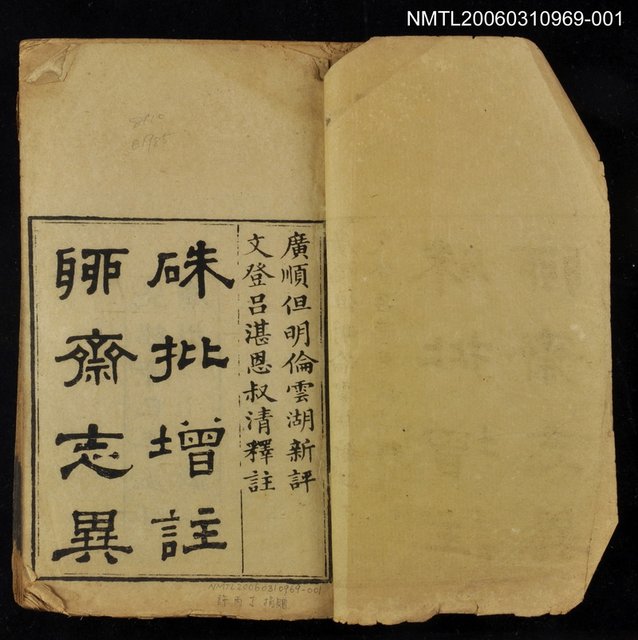 NMTL20060310969-001
廣順但明倫雲湖新評
文登呂湛恩叔清釋註
硃批增註
聊齋志異
NMTL20060310969-001